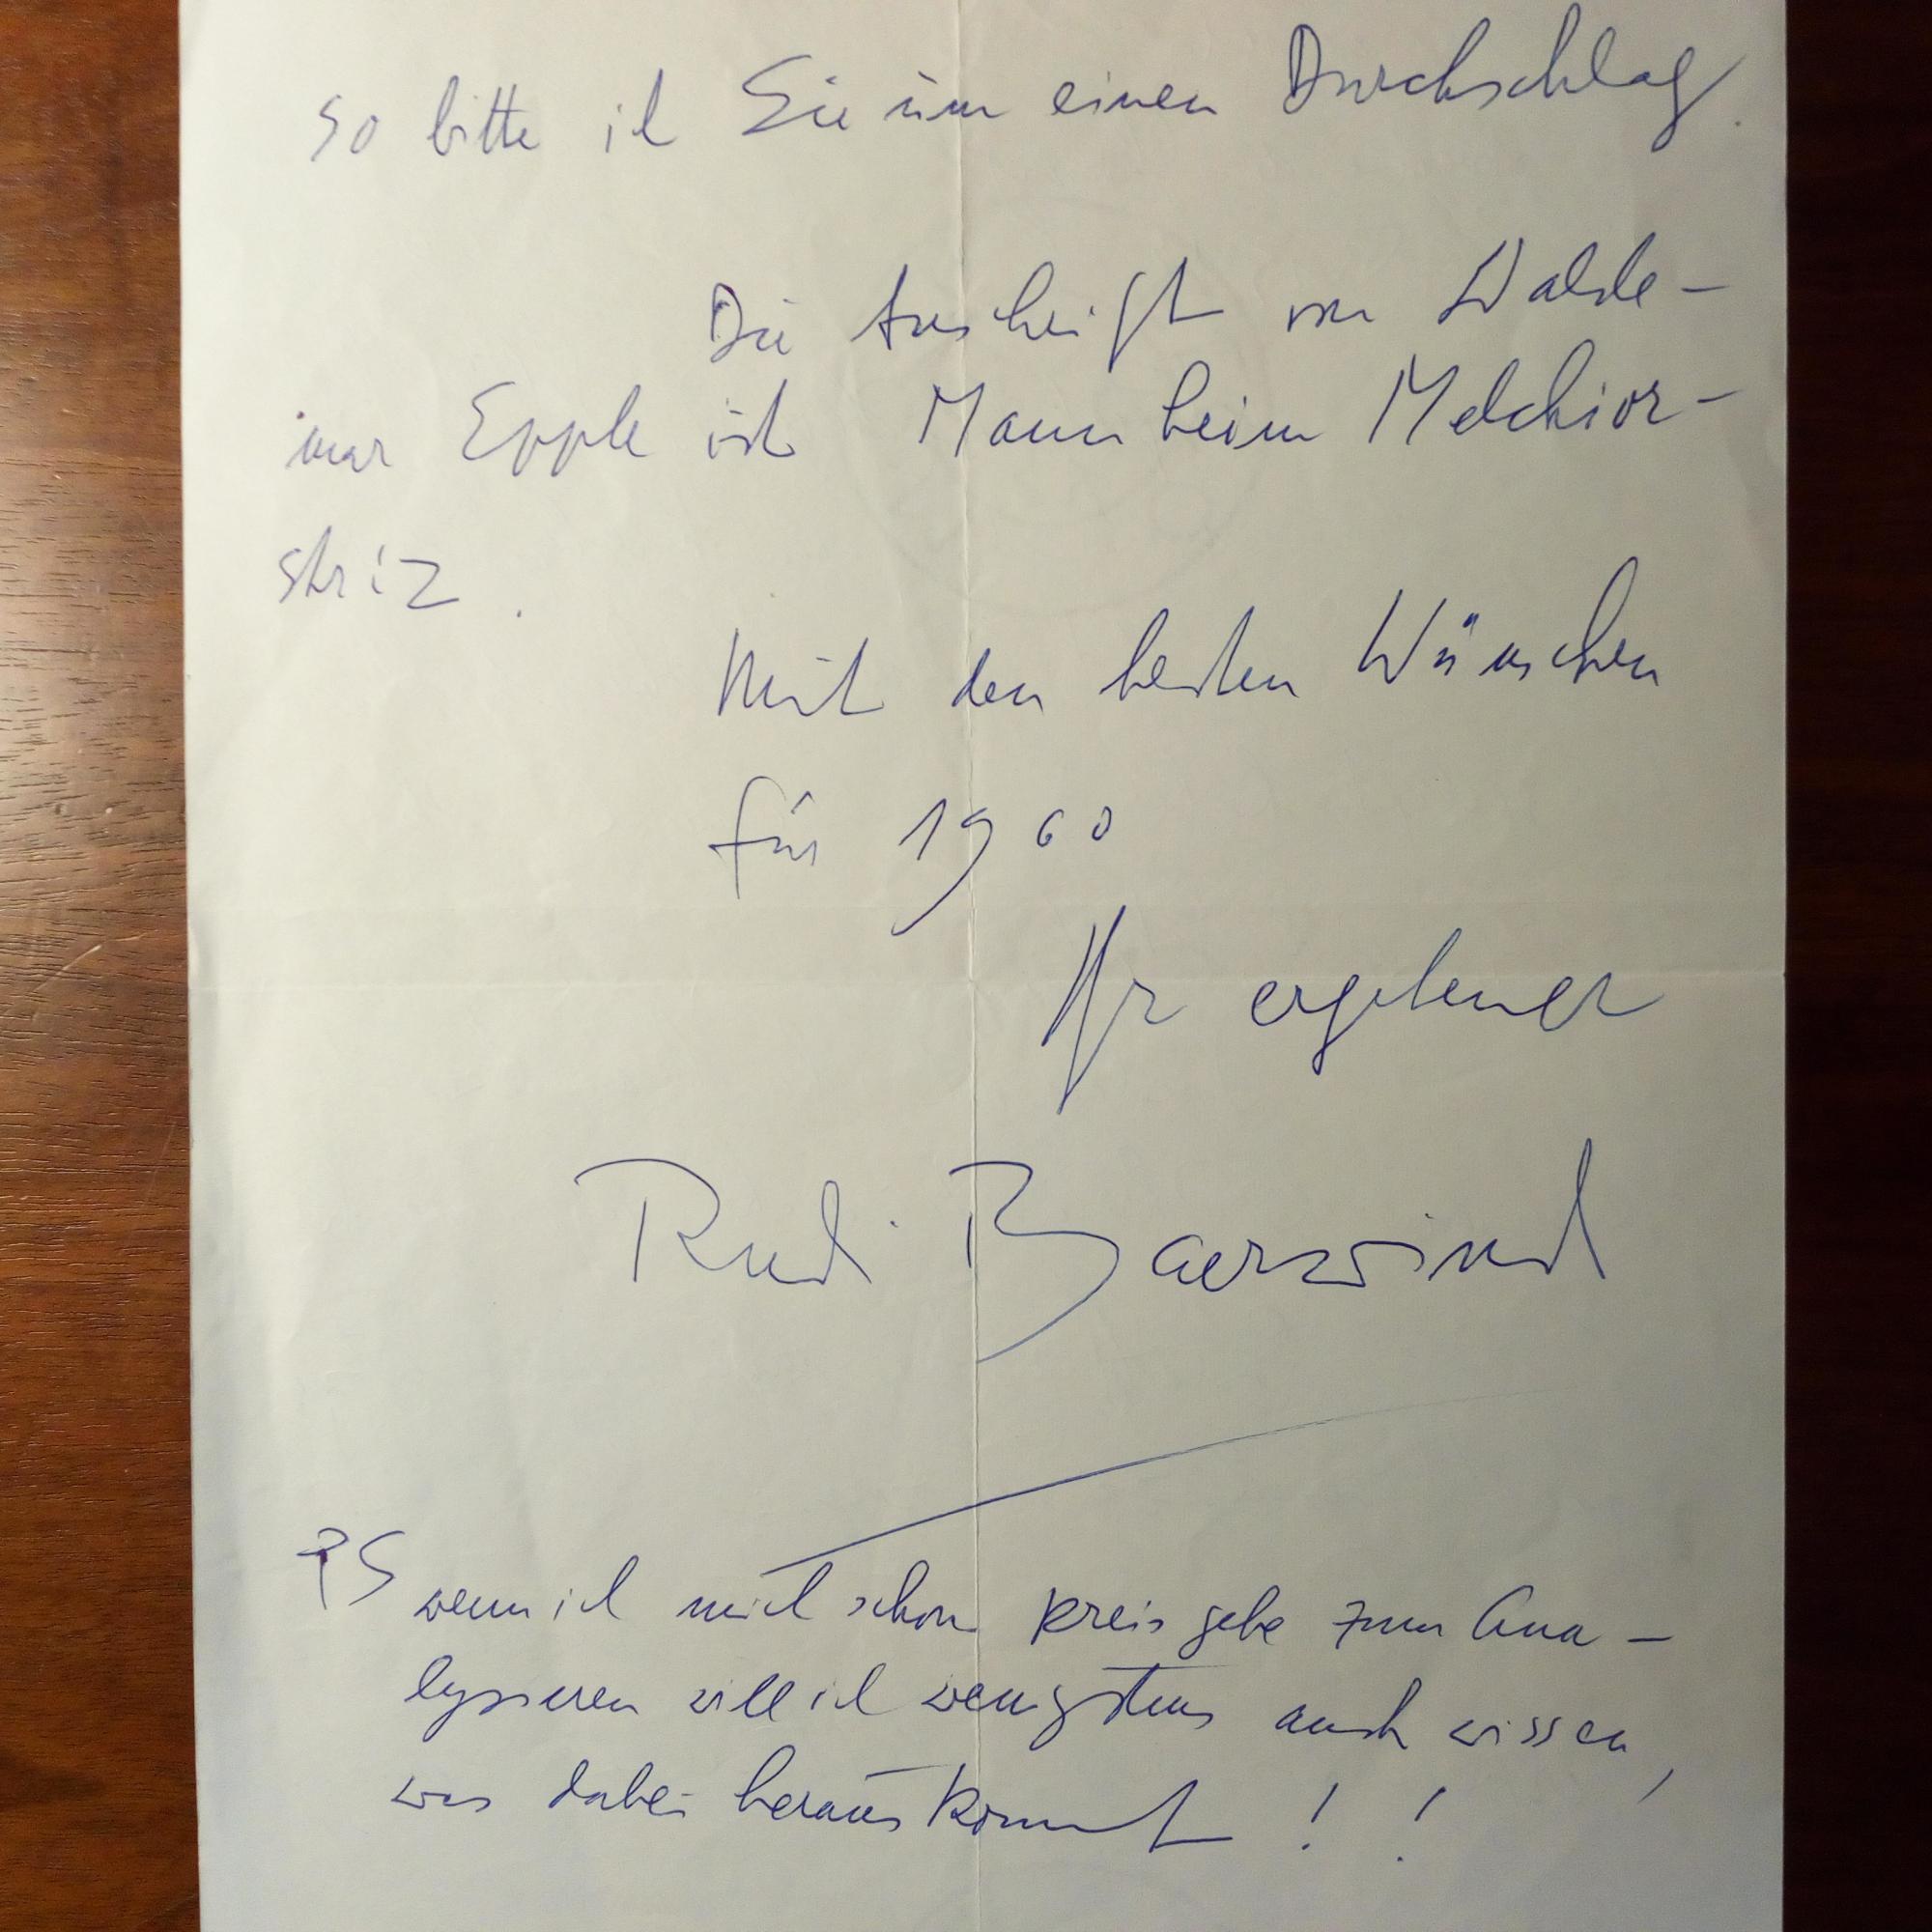 So bitte ich Sie um einen Durchschlag.
Die Anschrift von Walde-
mar Epple ist Mannheim Melchior-
str 12.
Mit den besten Wünschen
für 1960
Ihr ergebener
Rudi Baerwind
PS wenn ich mich schon preis gebe zum Ana-
lysieren will ich wenigstens auch wissen,
was dabei herauskommt!!